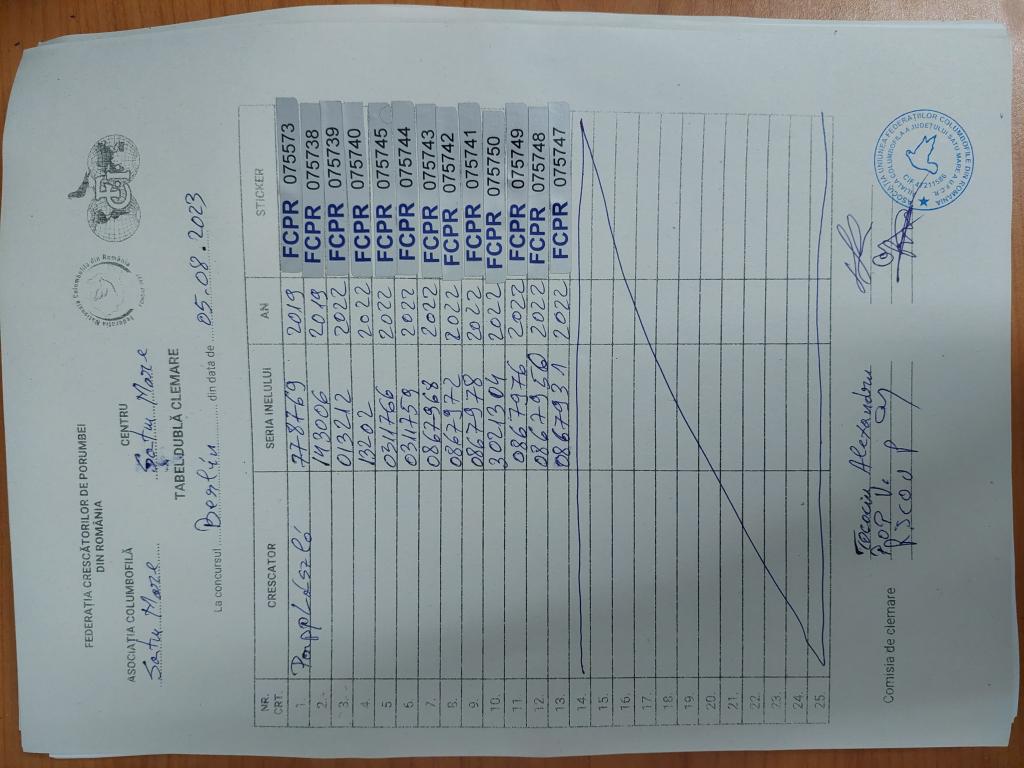 FEDERAȚIA CRESCĂTORILOR DE PORUMBEI
DIN ROMÂNIA
ASOCIAȚIA COLUMBOFILĂ CENTRU
Satu Mare Satu Mare
TABEL DUBLĂ CLEMARE
La concursul Berlin din data de 05.08.2023
NR. CRT. CRESCATOR SERIA INELULUI AN STICKER
1. Papp László 778769 2019 FCPR 075573
2. 143006 2019 FCPR 075738
3. 013212 2022 FCPR 075739
4. 13202 2022 FCPR 075740
5 0311766 2022 FCPR 075745
6. 0311759 2022 FCPR 075744
7. 0867968 2022 FCPR 075743
8. 0867972 2022 FCPR 075742
9. 0867978 2022 FCPR 075741
10. 3021304 2022 FCPR 075750
11. 0867976 2022 FCPR 075749
12. 0867950 2022 FCPR 075748
13. 0867931 2022 FCPR 075747
14.
15.
16.
17.
18.
19.
20.
21.
22.
23.
24.
25.
Comisia de clemare
Alexandru
Pop V.
ASOCIAȚIA UNIUNEA FEDERAȚIILOR COLUMBOFILE DIN ROMÂNIA
FILIALA COLUMBOFILĂ A JUDEȚULUI SATU MARE